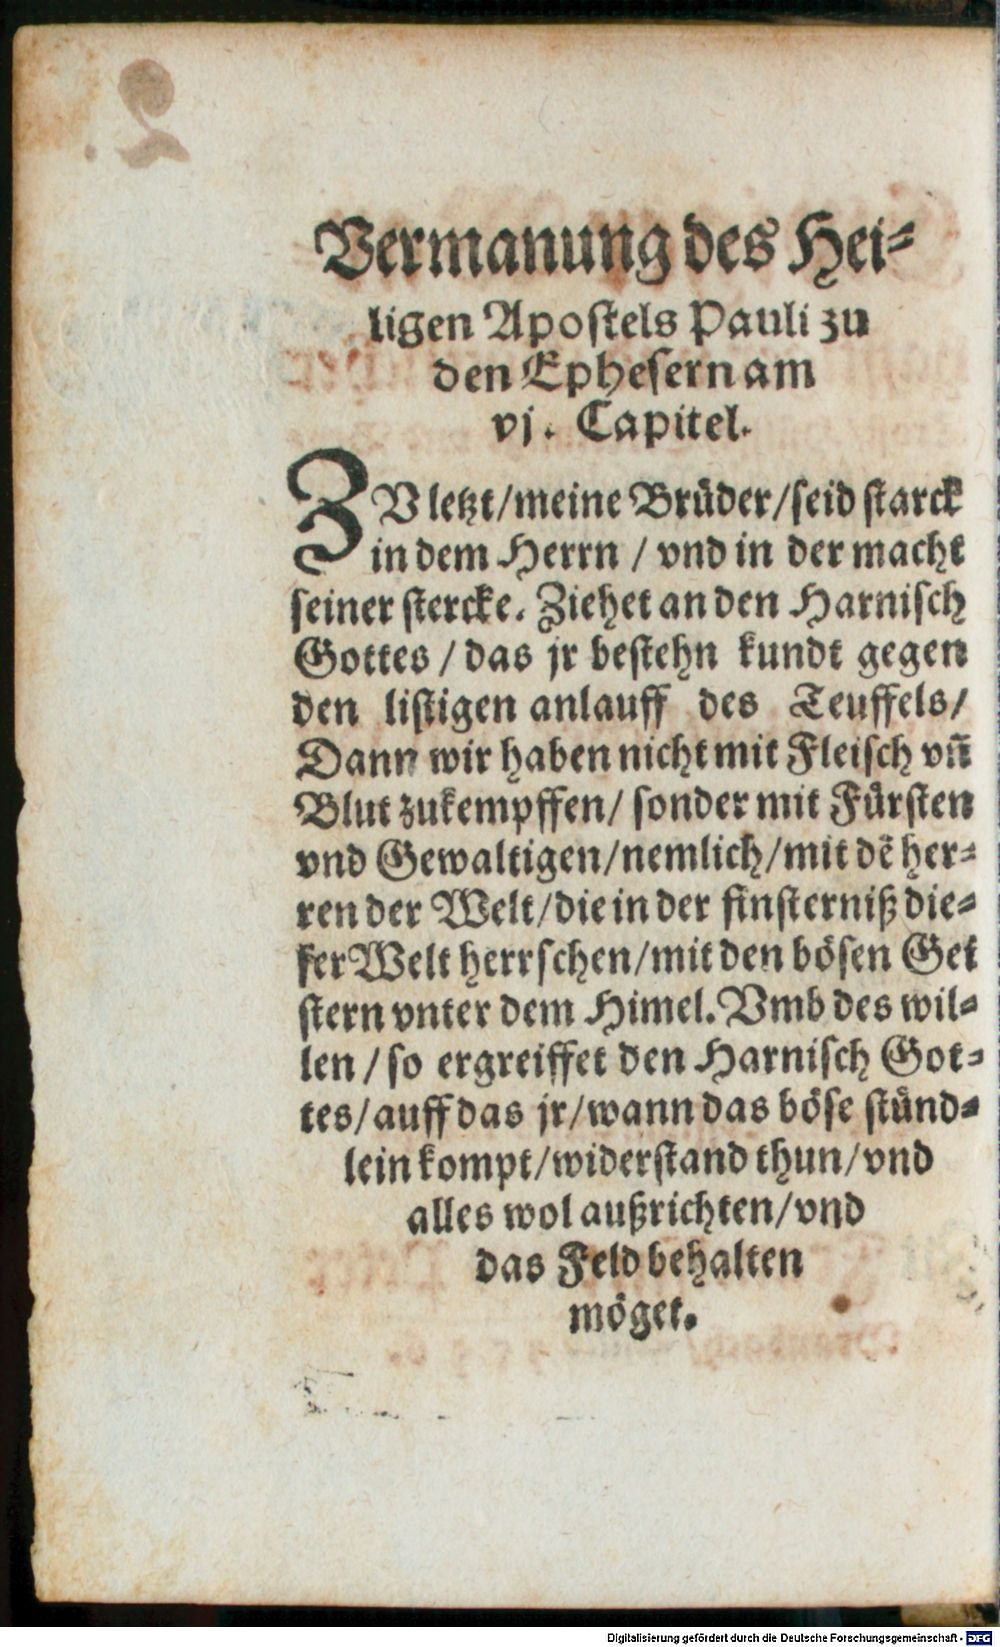 Vermanung des Hei⸗
ligen Apoſtels Pauli zu
den Epheſern am
vj. Capitel.
ZV letzt/meine Bruͤder/ſeid ſtarck
in dem Herrn / vnd in der macht
ſeiner ſtercke. Ziehet an den Harniſch
Gottes / das jr beſtehn kundt gegen
den liſtigen anlauff des Teuffels/
Dann wir haben nicht mit Fleiſch vn̄
Blut zukempffen/ ſonder mit Fuͤrſten
vnd Gewaltigen/nemlich/mit dē her⸗
ren der Welt/die in der finſterniß die⸗
ſer Welt herrſchen/mit den boͤſen Gei
ſtern vnter dem Himel. Vmb des wil⸗
len / ſo ergreiffet den Harniſch Got⸗
tes/auff das jr/wann das boͤſe ſtuͤnd⸗
lein kompt/widerſtand thun/vnd
alles wol außrichten/vnd
das Feld behalten
moͤget.
Digitalisierung gefördert durch die Deutsche Forschungsgemeinschaft - DFG